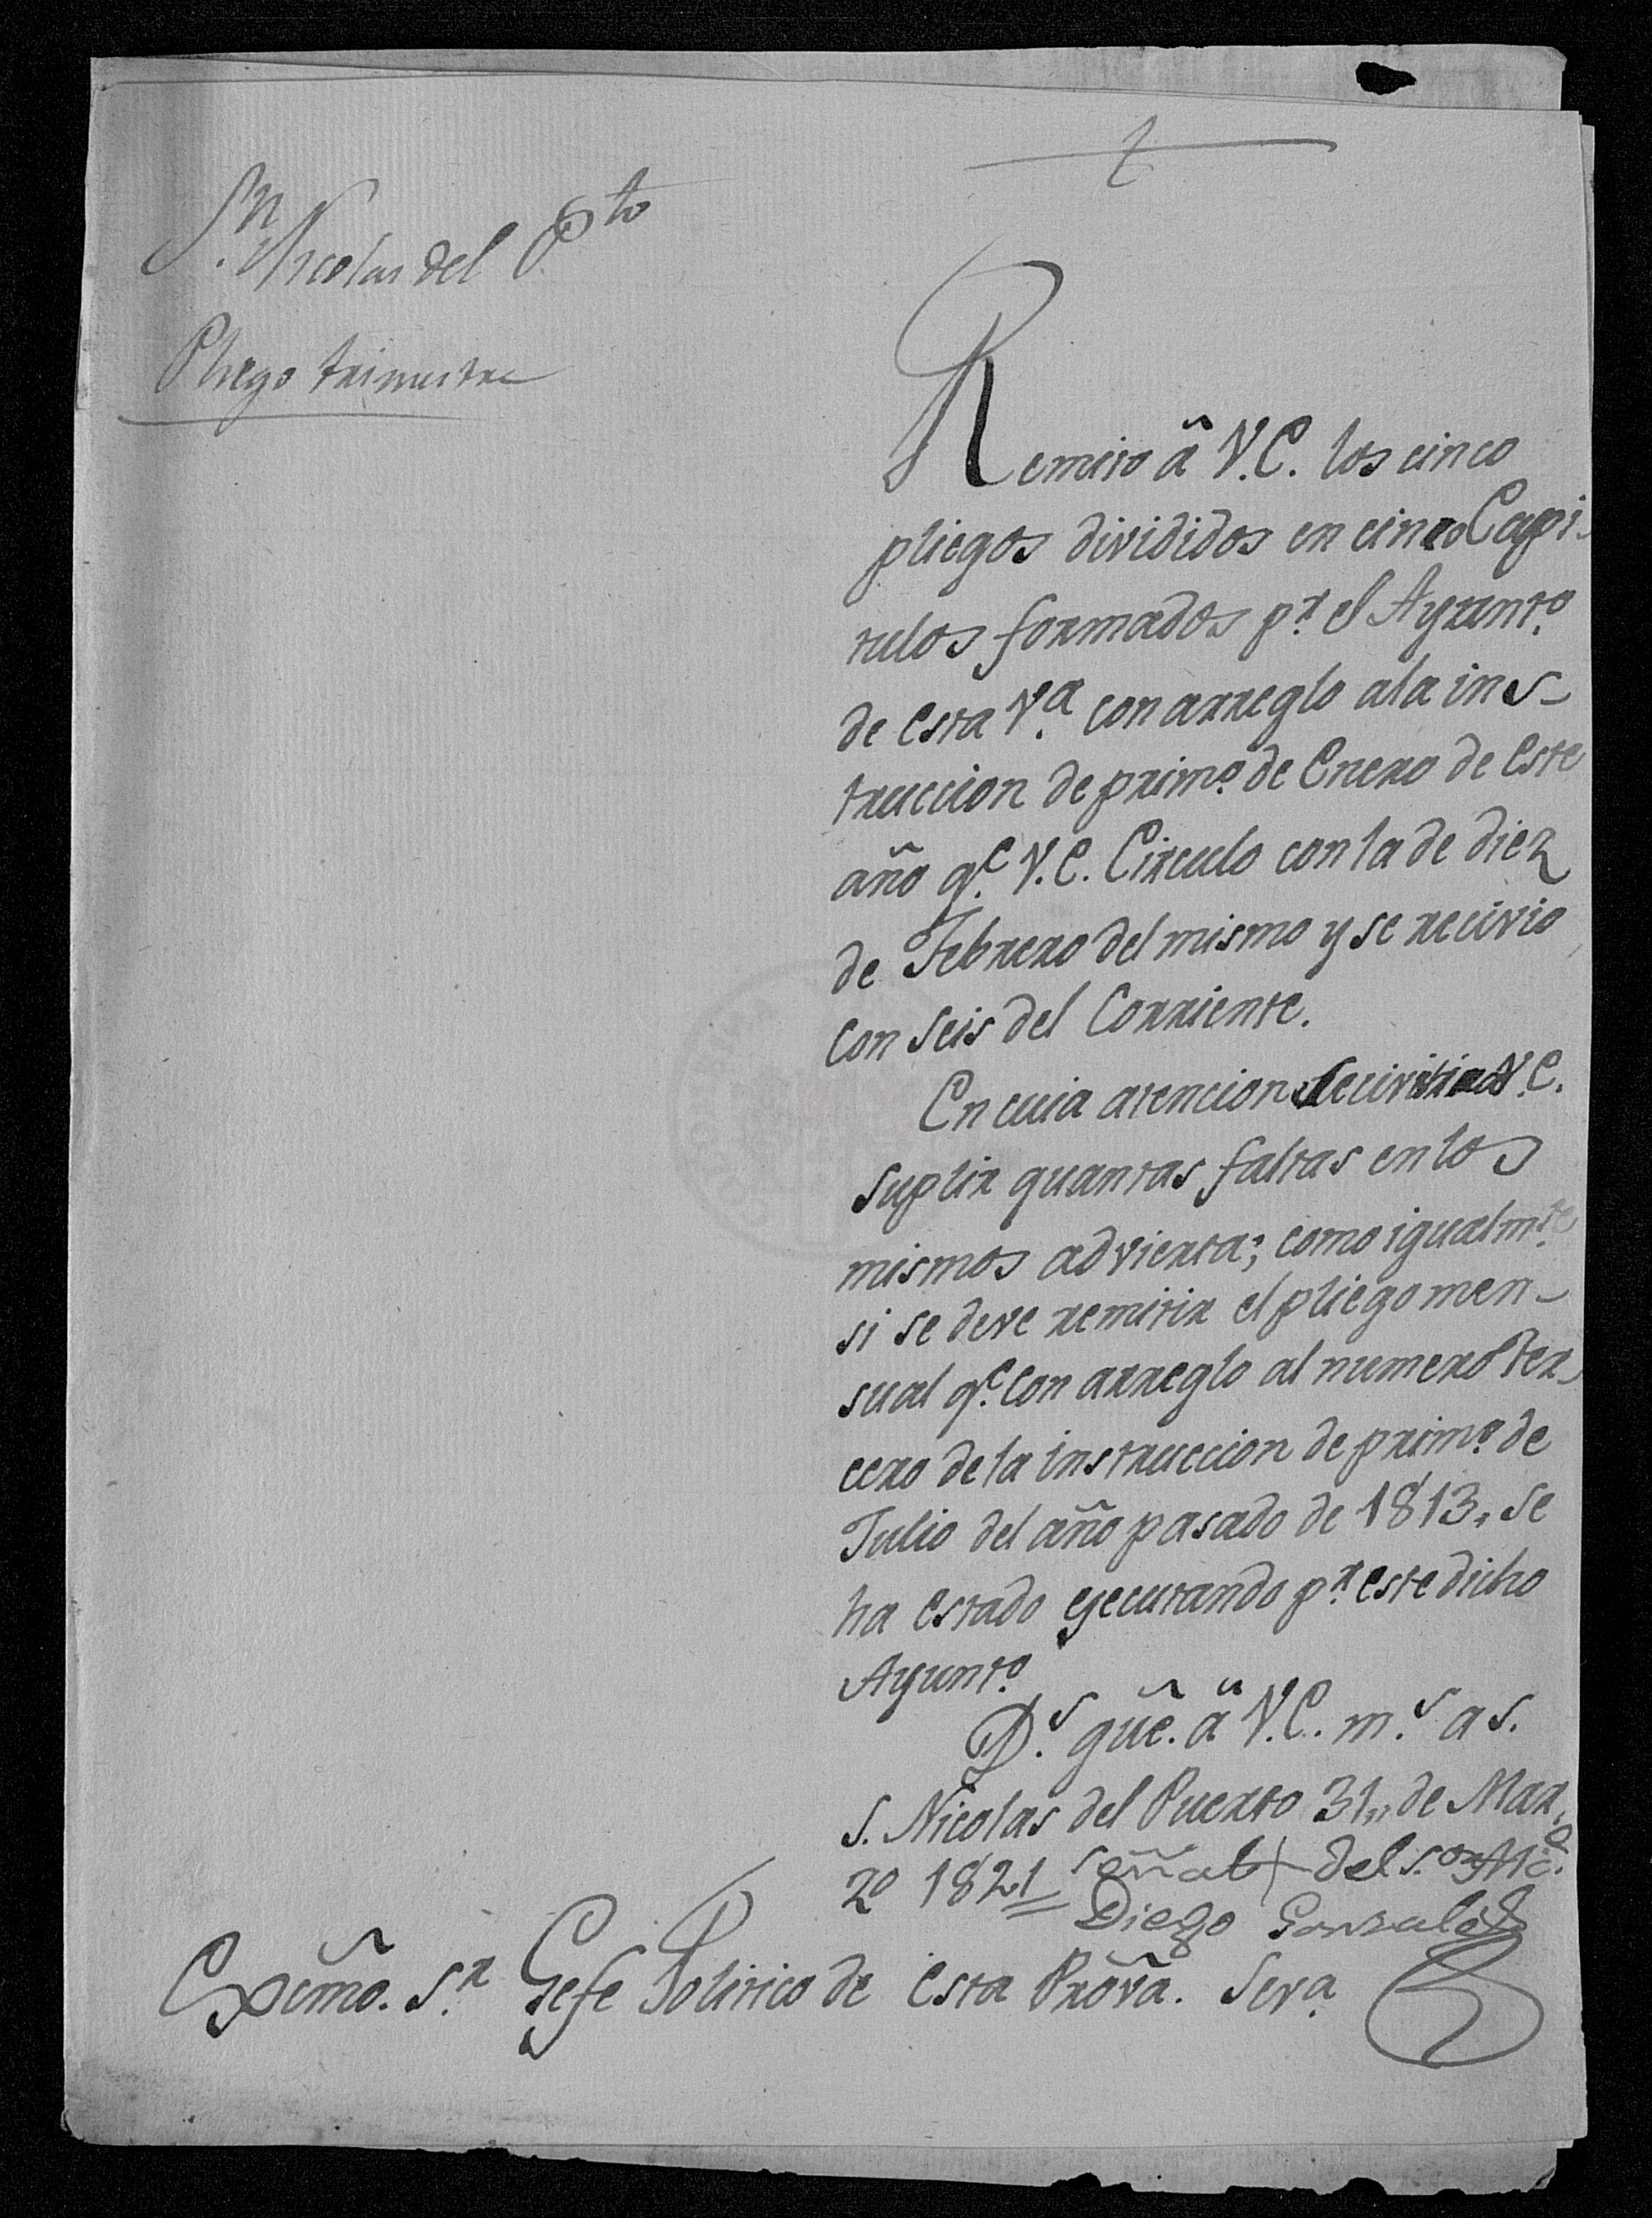 Sn. Nicolas del Pto
Pliego trimestre
Remito â V.E. los cinco
pliegos divididos en cinco Capi-
tulos formados pr. el Ayunto.
de esta Va. con arreglo a la ins-
truccion de primo. de Enero de este
año qe. V.E. Circulo con la de diez
de Febrero del mismo y se recivio
con seis del Corriente.
En cuia atencion V.E.
suplir quantas faltas en los
mismos advierta; como igualmte.
si se deve remitir el pliego men-
sual qe. con arreglo al numero ter-
cero de la instruccion de primo. de
Julio del año pasado de 1813, se
ha estado egecutando pr. este dicho
Ayunto.
Ds. gũe. â V.E. ms. as.
S. Nicolas del Puerto 31,, de Mar-
zo 1821 señal + del S.or Alc.e
Diego Gonzalez
Excmõ. Sr. Gefe Politico de esta Prõva. Seva.